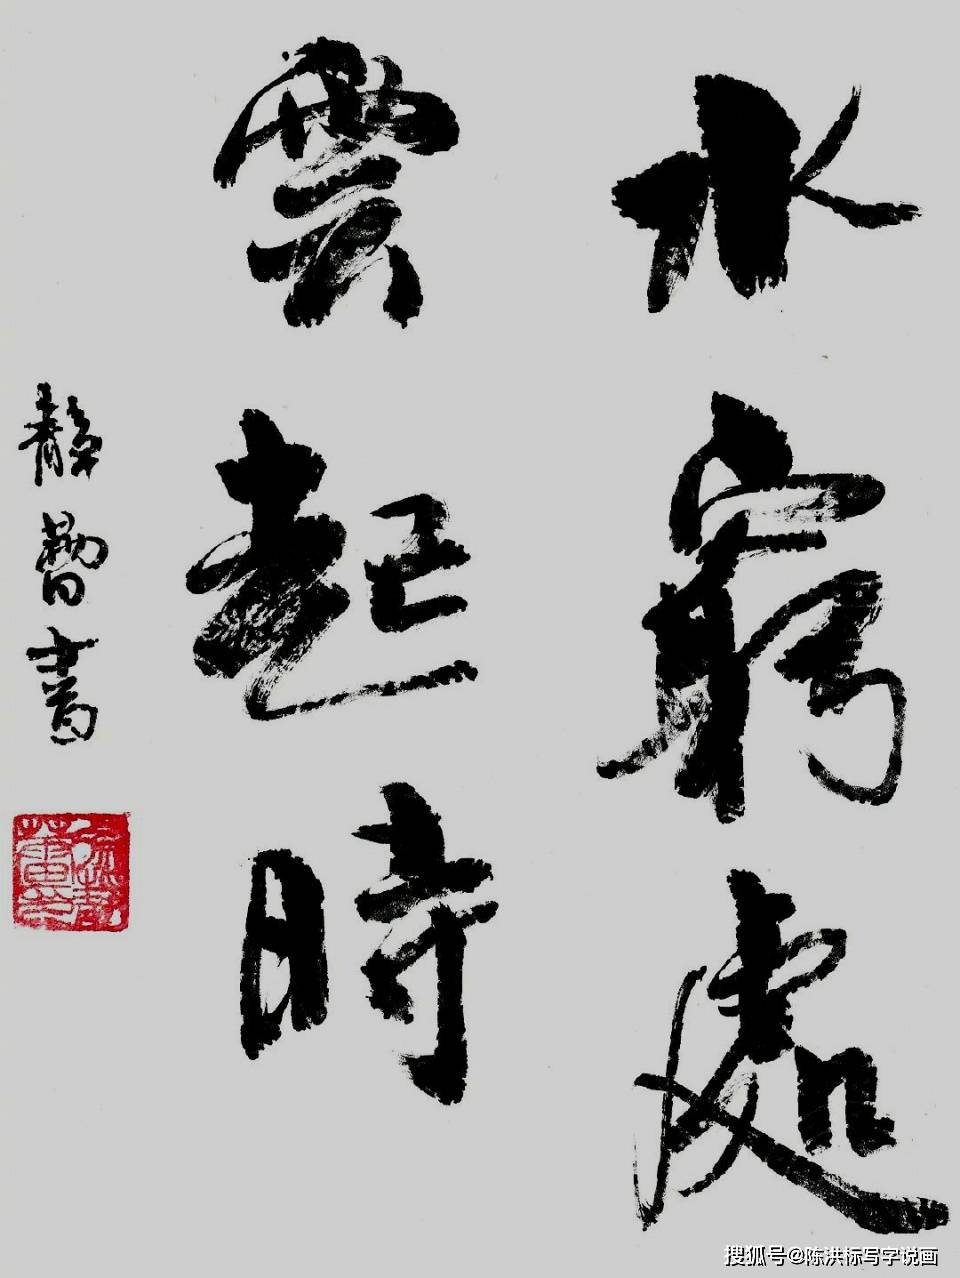 水窮處
雲起時
靜 書
搜狐号@陈洪标写字说画